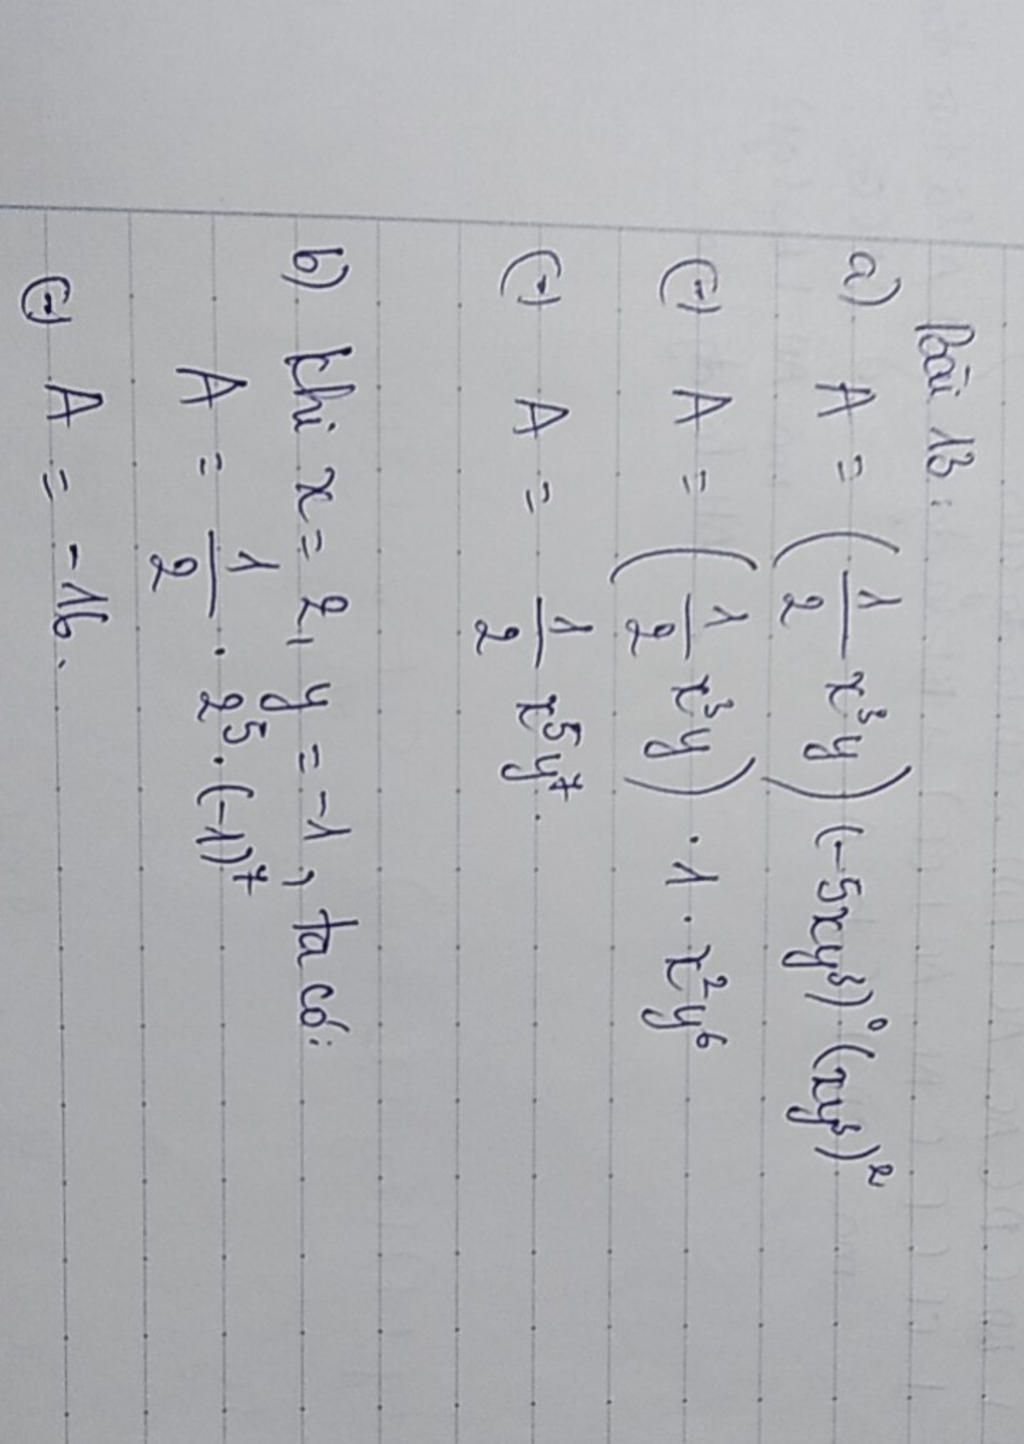 Bài 13:
a) A = (1/2 x³y) (-5xy³)⁰ (xy³)²
(-) A = (1/2 x³y) . 1 . x²y⁶
(-) A = 1/2 x⁵y⁷.
b) Khi x = 2, y = -1, ta có:
A = 1/2 . 2⁵ . (-1)⁷
(-) A = -16.